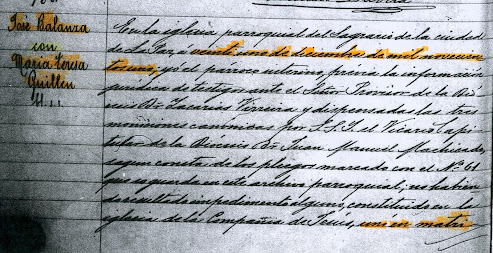 José Balanza
con
María Teresa
Guillén
En la iglesia parroquial del Sagrario de la ciudad
de La Paz, á veinte uno de diciembre de mil novecien
tos uno, yó el párroco interino, previa la información
jurídica de testigos ante el Señor Provisor de la Dió
cesis Dr. Zacarías Virreira y dispensadas las tres
moniciones canónicas por S.S.I. el Vicario Capi
tular de la Diócesis Dr. Juan Manuel Machicado,
segun consta de los pliegos marcado con el Nº 61
que se guarda en este archivo parroquial; no habien
do resultado impedimento alguno, constituido en la
iglesia de la Compañia de Jesús, uní en matri-